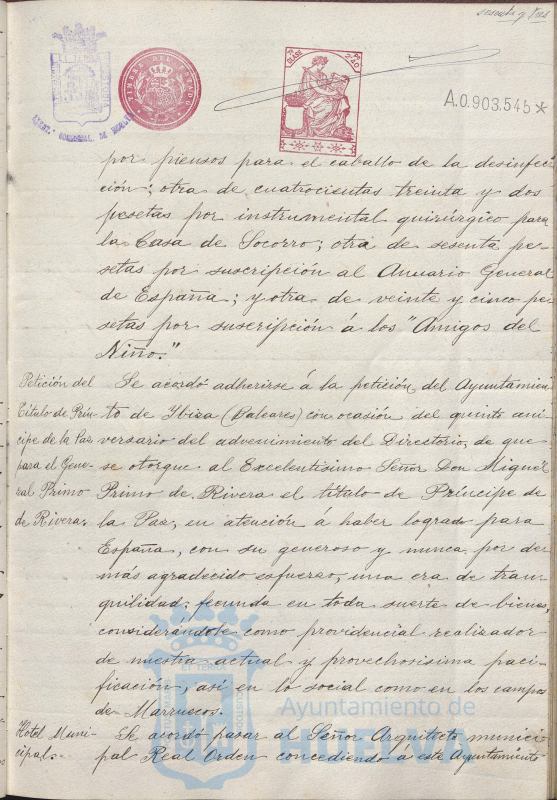 sesenta y tres
TIMBRE DEL ESTADO
CLASE
A.0.903.545*
por piensos para el caballo de la desinfec-
ción; otra de cuatrocientas treinta y dos
pesetas por instrumental quirúrgico para
la Casa de Socorro; otra de sesenta pe-
setas por suscripción al Anuario General
de España; y otra de veinte y cinco pe-
setas por suscripción á los "Amigos del
Niño."
Petición del
Título de Prín-
cipe de la Paz
para el Gene-
ral Primo
de Rivera.
Se acordó adherirse á la petición del Ayuntamien-
to de Ybiza (Baleares) con ocasión del quinto ani-
versario del advenimiento del Directorio, de que
se otorgue al Excelentísimo Señor Don Miguel
Primo de Rivera el título de Príncipe de
la Paz, en atención á haber logrado para
España, con su generoso y nunca por de-
más agradecido esfuerzo, una era de tran-
quilidad, fecunda en toda suerte de bienes,
considerándole como providencial realizador
de nuestra actual y provechosísima paci-
ficación, así en lo social como en los campos
de Marruecos.
Hotel Muni-
cipal.
Se acordó pasar al Señor Arquitecto munici-
pal Real Orden concediendo a este Ayuntamiento
Ayuntamiento de
HUELVA